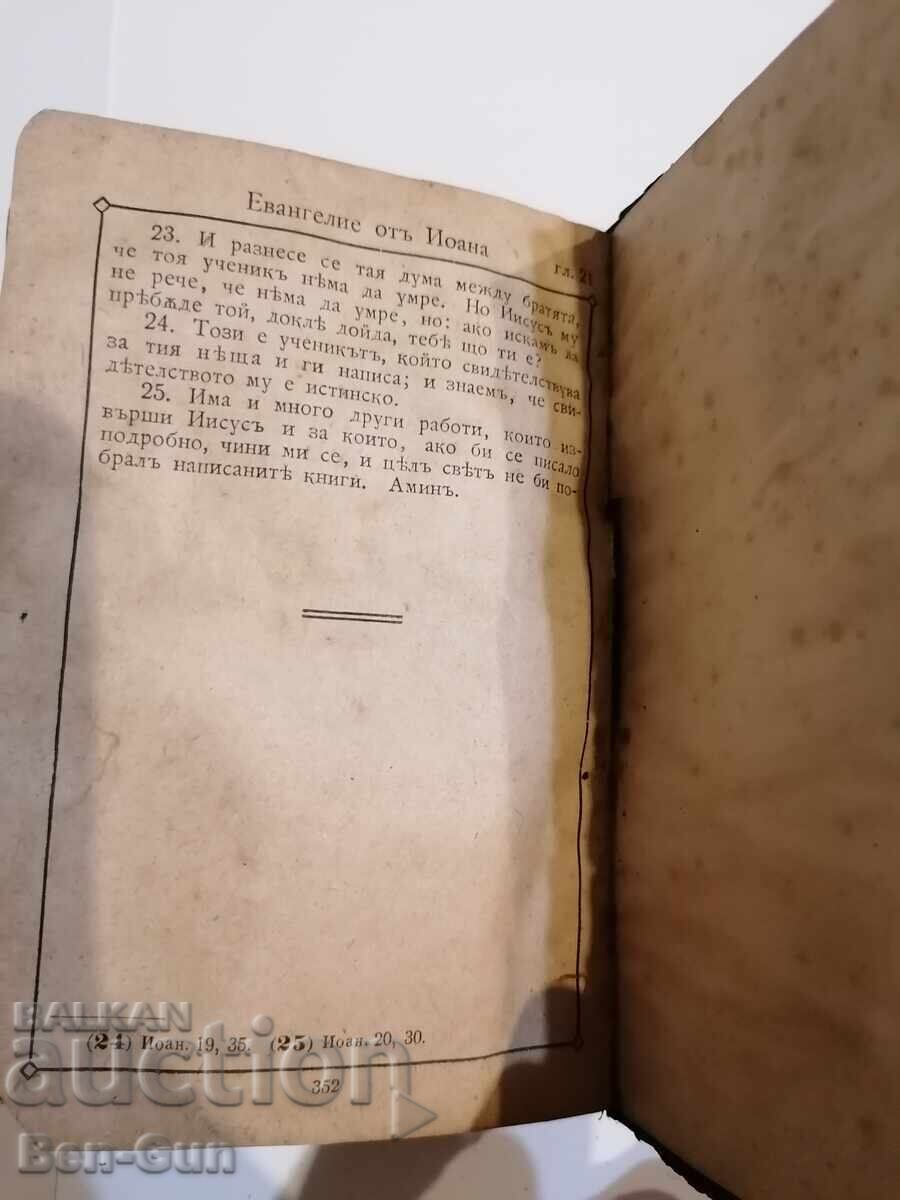 Евангелие отъ Иоана
гл. 21
23. И разнесе се тая дума между братята,
че тоя ученикъ нѣма да умре. Но Иисусъ му
не рече, че нѣма да умре, но: ако искамъ да
прѣбѫде той, доклѣ дойда, тебѣ що ти е?
24. Този е ученикътъ, който свидѣтелствува
за тия нѣща и ги написа; и знаемъ, че сви-
дѣтелството му е истинско.
25. Има и много други работи, които из-
върши Иисусъ и за които, ако би се писало
подробно, чини ми се, и цѣлъ свѣтъ не би по-
бралъ написанитѣ книги. Аминъ.
(24) Иоан. 19, 35. (25) Иоан. 20, 30.
352
BALKAN
auction
Ben-Gun